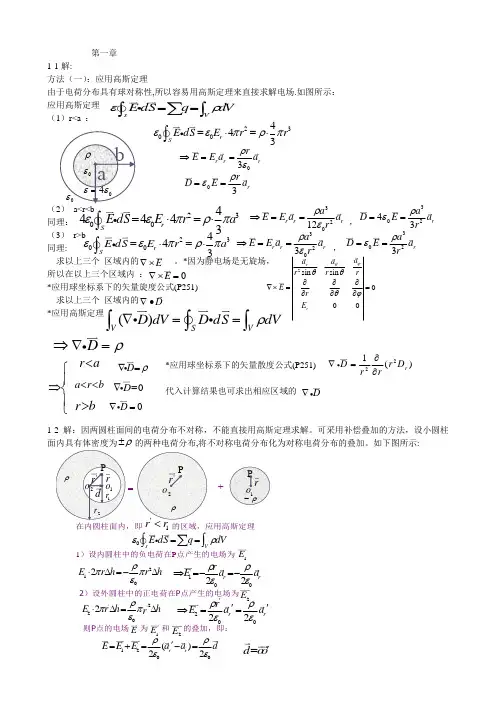 第一章
1-1 解:
方法（一）：应用高斯定理
由于电荷分布具有球对称性,所以容易用高斯定理来直接求解电场.如图所示:
应用高斯定理 $\varepsilon\oint_s \vec{E}\bullet d\vec{S}=\sum q=\int_V \rho dV$
（1）r<a ：
$\varepsilon_0\oint_S \vec{E}\bullet d\vec{S}=\varepsilon_0E_r\cdot4\pi r^2=\rho\cdot\frac{4}{3}\pi r^3$
a b
ρ
ε₀
ε = 4ε₀
ε₀
$\Rightarrow \vec{E}=E_r\vec{a}_r=\frac{\rho r}{3\varepsilon_0}\vec{a}_r$
$\vec{D}=\varepsilon_0\vec{E}=\frac{\rho r}{3}\vec{a}_r$
（2） a<r<b
同理： $4\varepsilon_0\oint_S \vec{E}\bullet d\vec{S}=4\varepsilon_0E_r\cdot4\pi r^2=\rho\cdot\frac{4}{3}\pi a^3$ $\Rightarrow \vec{E}=E_r\vec{a}_r=\frac{\rho a^3}{12\varepsilon_0r^2}\vec{a}_r$ , $\vec{D}=4\varepsilon_0\vec{E}=\frac{\rho a^3}{3r^2}\vec{a}_r$
（3） r>b
同理: $\varepsilon_0\oint_S \vec{E}\bullet d\vec{S}=\varepsilon_0E_r\cdot4\pi r^2=\rho\cdot\frac{4}{3}\pi a^3$ $\Rightarrow \vec{E}=E_r\vec{a}_r=\frac{\rho a^3}{3\varepsilon_0r^2}\vec{a}_r$ , $\vec{D}=\varepsilon_0\vec{E}=\frac{\rho a^3}{3r^2}\vec{a}_r$
求以上三个 区域内的 $\nabla\times\vec{E}$ 。*因为静电场是无旋场，
所以在以上三个区域内 ：$\nabla\times\vec{E}=0$
*应用球坐标系下的矢量旋度公式(P251)
$\nabla\times\vec{E}=\begin{vmatrix}\frac{a_r}{r^2\sin\theta}&\frac{a_\theta}{r\sin\theta}&\frac{a_\varphi}{r}\\\frac{\partial}{\partial r}&\frac{\partial}{\partial\theta}&\frac{\partial}{\partial\varphi}\\E_r&0&0\end{vmatrix}=0$
求以上三个 区域内的 $\nabla\bullet\vec{D}$
*应用高斯定理 $\int_V(\nabla\bullet\vec{D})dV=\oint_S\vec{D}\bullet d\vec{S}=\int_V\rho dV$
$\Rightarrow\nabla\bullet\vec{D}=\rho$
$\Rightarrow$ r<a $\nabla\bullet\vec{D}=\rho$
a<r<b $\nabla\bullet\vec{D}=0$
r>b $\nabla\bullet\vec{D}=0$
*应用球坐标系下的矢量散度公式(P251) $\nabla\bullet\vec{D}=\frac{1}{r^2}\frac{\partial}{\partial r}(r^2D_r)$
代入计算结果也可求出相应区域的 $\nabla\bullet\vec{D}$
1-2 解：因两圆柱面间的电荷分布不对称，不能直接用高斯定理求解。可采用补偿叠加的方法，设小圆柱
面内具有体密度为 ±ρ 的两种电荷分布,将不对称电荷分布化为对称电荷分布的叠加。如下图所示:
在内圆柱面内，即 $r'<r_1$ 的区域，应用高斯定理
$\varepsilon_0\oint_s\vec{E}\bullet d\vec{S}=\sum q=\int_V\rho dV$
1）设内圆柱中的负电荷在P点产生的电场为 $\vec{E}_1$
$E_1\cdot2\pi r\Delta h=-\frac{\rho}{\varepsilon_0}\pi r^2\Delta h$ $\Rightarrow\vec{E}_1=-\frac{\rho r}{2\varepsilon_0}\vec{a}_r=-\frac{\rho}{2\varepsilon_0}\vec{a}_r$
2）设外圆柱中的正电荷在P点产生的电场为 $\vec{E}_2$
则P点的电场 $\vec{E}$ 为 $\vec{E}_1$ 和 $\vec{E}_2$ 的叠加，即: